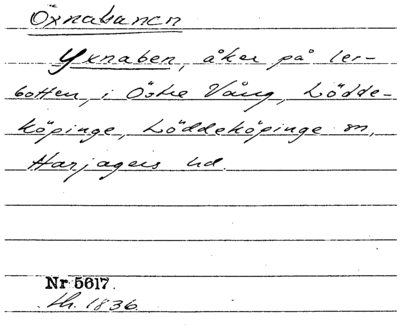 Öxnabanen
Yxnaben, åker på ler-
botten, i Östre Vång, Lödde-
köpinge, Löddeköpinge sn,
Harjagers hd.
Nr 5617.
lh. 1836.